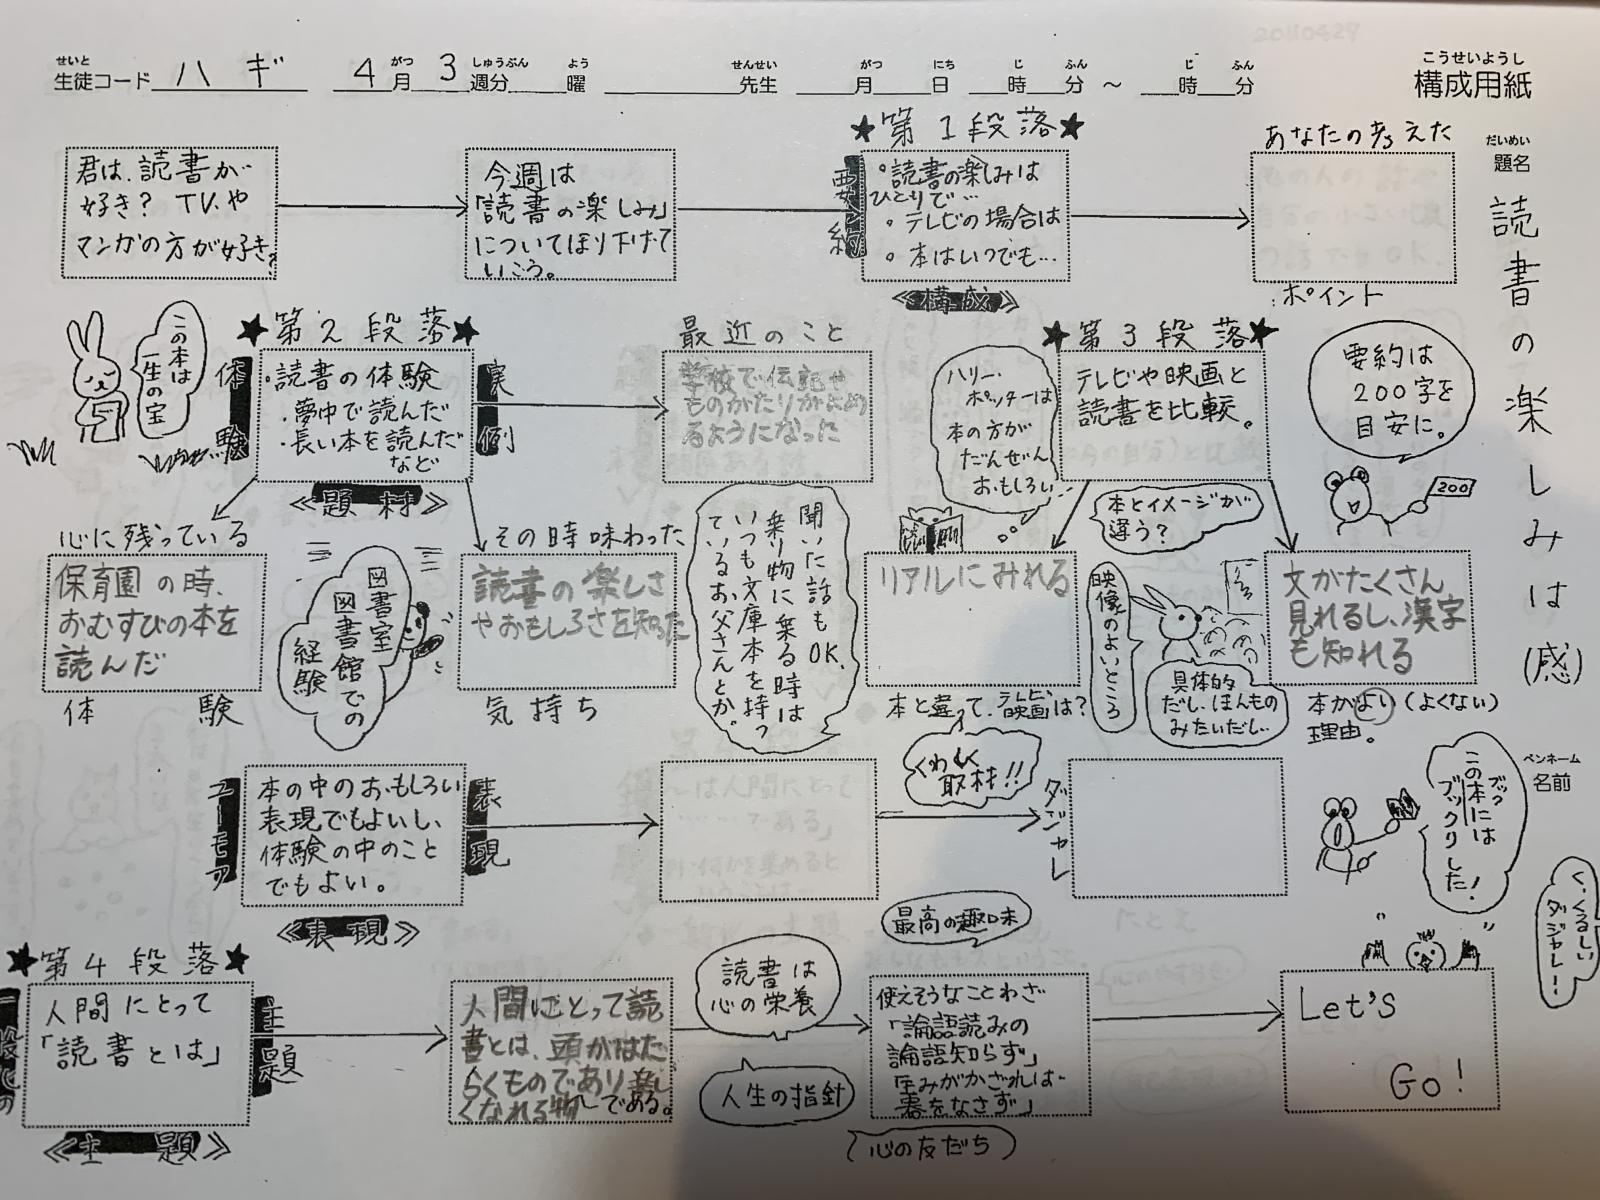 20110429
せいと
生徒コード ハギ 4月 3週分 曜 先生 月 日 時 分 ～ 時 分
がつ しゅうぶん よう せんせい がつ にち じ ふん じ ふん
こうせいようし
構成用紙
だいめい
題名
読書の楽しみは(感)
ペンネーム
名前
君は、読書が
好き？ TVや
マンガの方が好き？
今週は
「読書の楽しみ」
についてほり下げて
いこう。
★第1段落★
要約
・読書の楽しみは
ひとりで…
・テレビの場合は
・本はいつでも…
≪構成≫
あなたの考えた
ポイント
要約は
200字を
目安に。
200
この本は
一生の宝
★第2段落★
体験
・読書の体験
・夢中で読んだ
・長い本を読んだ
など
実例
≪題材≫
最近のこと
学校で伝記や
ものがたりがよめ
るようになった
心に残っている
保育園の時、
おむすびの本を
読んだ
体験
図書室
図書館での
経験
その時味わった
読書の楽しさ
やおもしろさを知った
気持ち
聞いた話もOK。
乗り物に乗る時は
いつも文庫本を持っ
ているお父さんとか。
★第3段落★
テレビや映画と
読書を比較。
ハリー・
ポッターは
本の方が
だんぜん
おもしろい…
本とイメージが
違う？
リアルにみれる
本と違って、テレビ・映画は？
映像のよいところ
具体的
だし、ほんもの
みたいだし…
文がたくさん
見れるし、漢字
も知れる
本がよい（よくない）
理由。
くわしく
取材!!
ユーモア
本の中のおもしろい
表現でもよいし、
体験の中のこと
でもよい。
表現
≪表現≫
ダジャレ
ブック
この本には
ブックリした！
く、くるしい
ダジャレ！
★第4段落★
一般化の
人間にとって
「読書とは」
主題
≪主題≫
人間にとって読
書とは、頭がはた
らくものであり楽し
くなれる物～である。
読書は
心の栄養
最高の趣味
人生の指針
心の友だち
使えそうなことわざ
「論語読みの
論語知らず」
「玉みがかざれば
器をなさず」
Let's
Go!